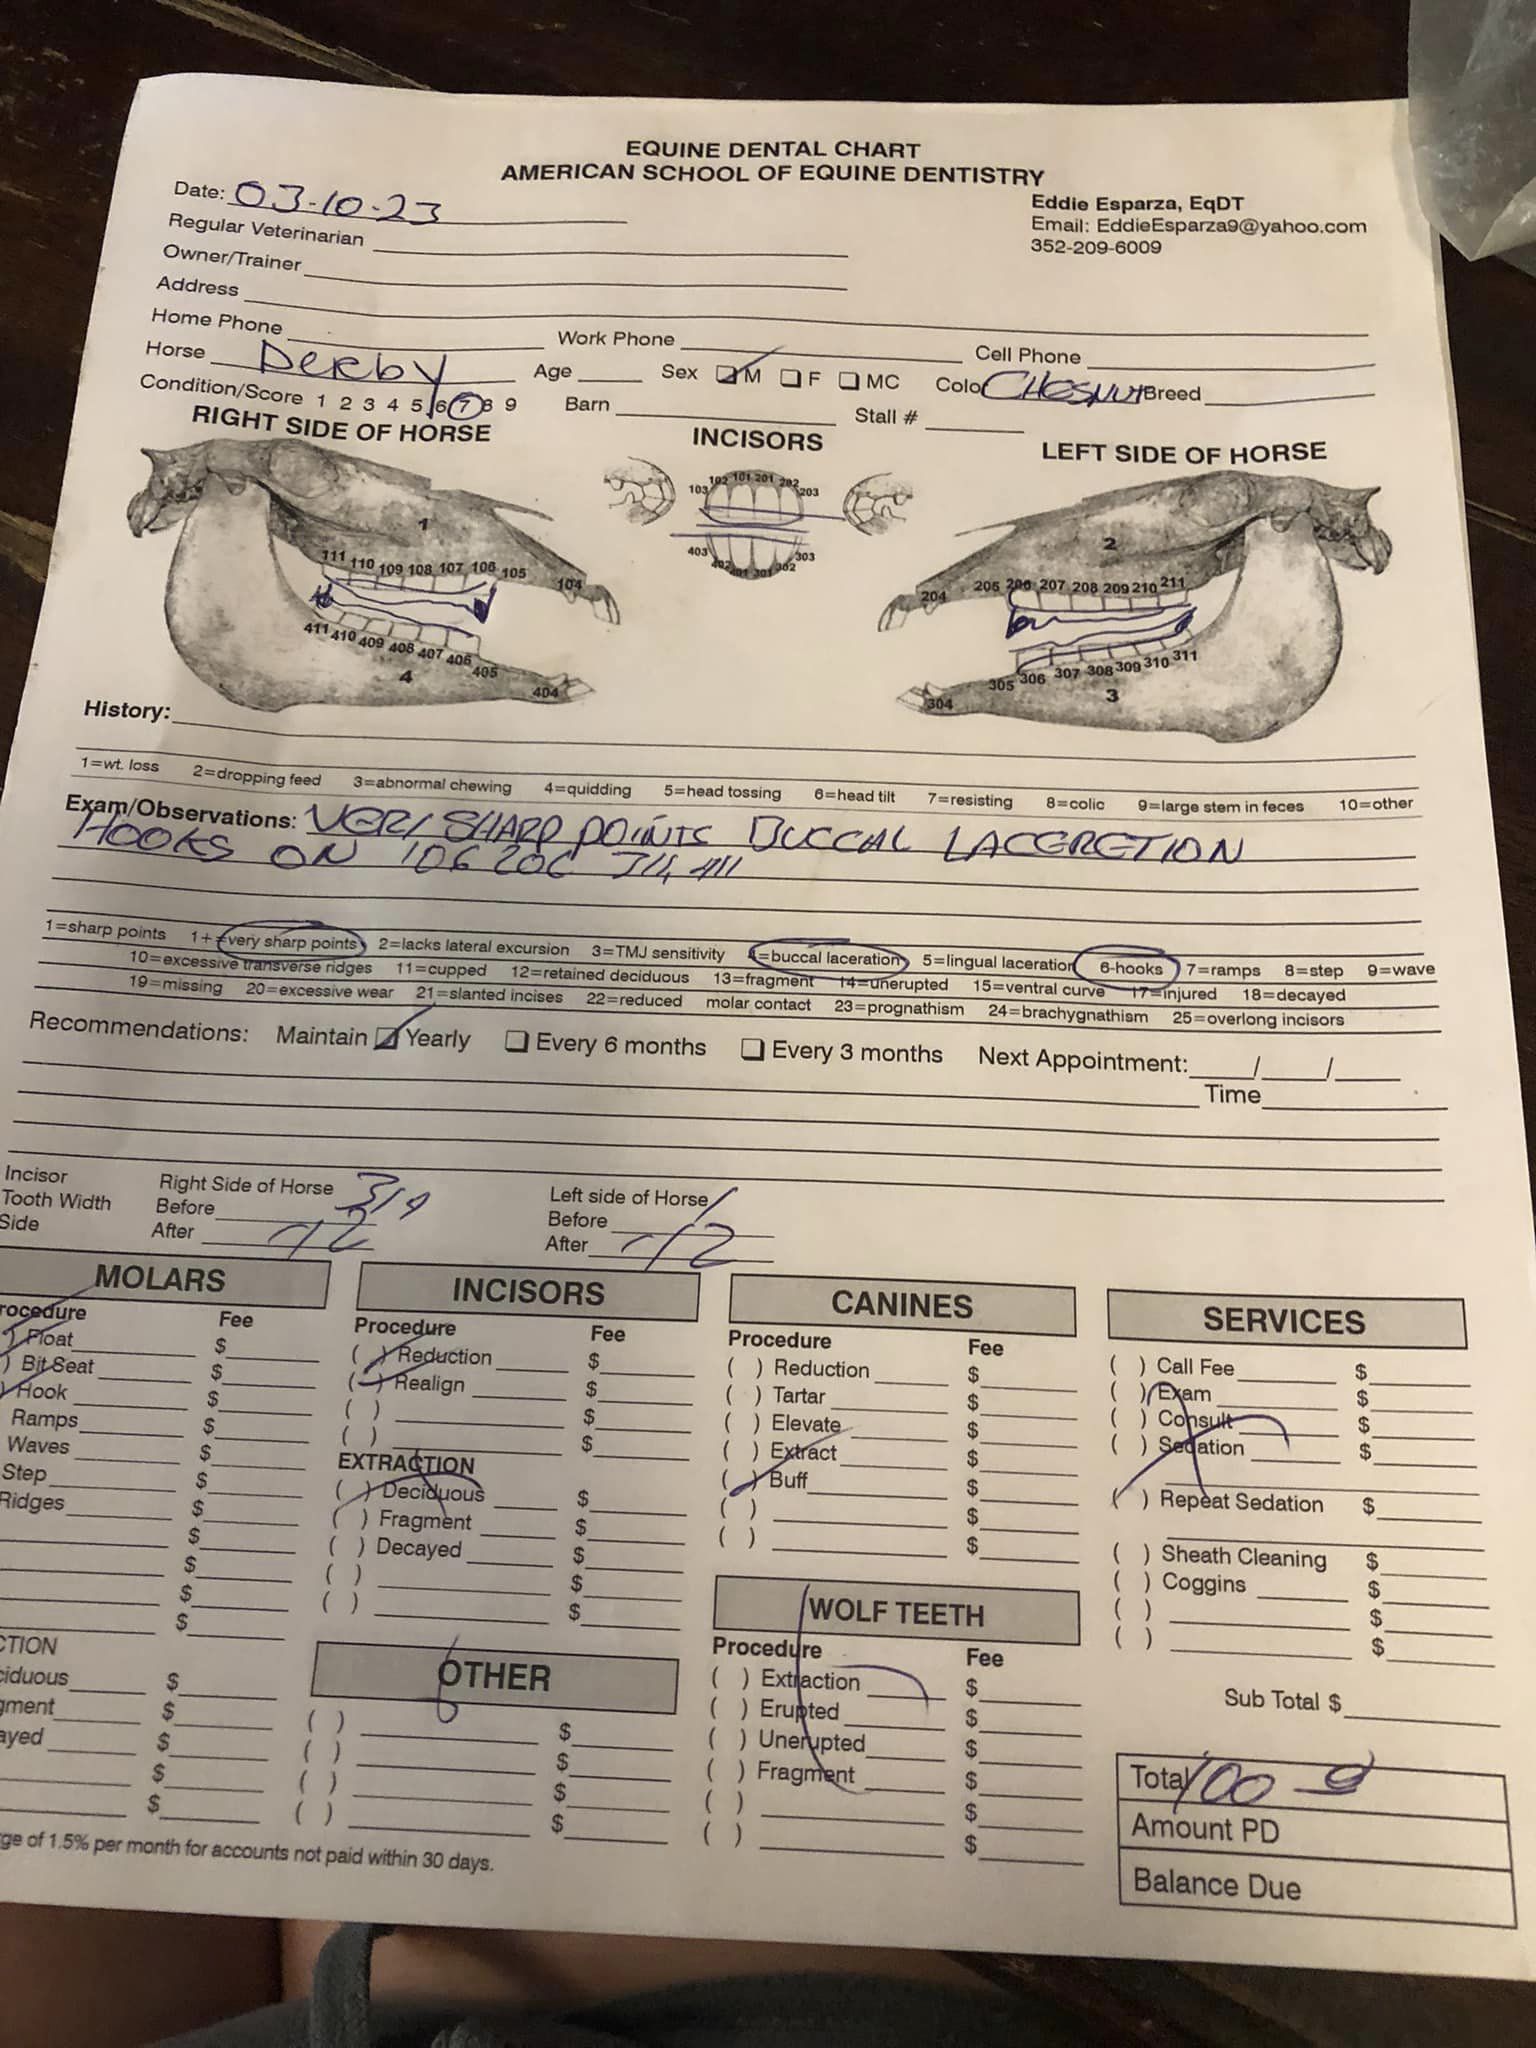 EQUINE DENTAL CHART
AMERICAN SCHOOL OF EQUINE DENTISTRY
Eddie Esparza, EqDT
Email: EddieEsparza9@yahoo.com
352-209-6009
Date: 03-10-23
Regular Veterinarian
Owner/Trainer
Address
Home Phone Work Phone Cell Phone
Horse Derby Age Sex M F MC Colo CHESNUT Breed
Condition/Score 1 2 3 4 5 6 7 8 9 Barn Stall #
RIGHT SIDE OF HORSE INCISORS LEFT SIDE OF HORSE
103 102 101 201 202 203
403 402 401 301 302 303
1
111 110 109 108 107 106 105 104
411 410 409 408 407 406 405 404
4
2
204 205 206 207 208 209 210 211
304 305 306 307 308 309 310 311
3
History:
1=wt. loss 2=dropping feed 3=abnormal chewing 4=quidding 5=head tossing 6=head tilt 7=resisting 8=colic 9=large stem in feces 10=other
Exam/Observations: VERY SHARP POINTS BUCCAL LACERETION
HOOKS ON 106 206 311, 411
1=sharp points 1+=very sharp points 2=lacks lateral excursion 3=TMJ sensitivity 4=buccal laceration 5=lingual laceration 6-hooks 7=ramps 8=step 9=wave
10=excessive transverse ridges 11=cupped 12=retained deciduous 13=fragment 14=unerupted 15=ventral curve 17=injured 18=decayed
19=missing 20=excessive wear 21=slanted incises 22=reduced molar contact 23=prognathism 24=brachygnathism 25=overlong incisors
Recommendations: Maintain Yearly Every 6 months Every 3 months Next Appointment: / /
Time
Incisor Right Side of Horse 3/4 Left side of Horse
Tooth Width Before Before
Side After After
MOLARS
rocedure Fee
) Float $
) Bit Seat $
) Hook $
Ramps $
Waves $
Step $
Ridges $
$
$
$
$
CTION
ciduous $
gment $
ayed $
$
$
INCISORS
Procedure Fee
( ) Reduction $
( ) Realign $
( ) $
( ) $
EXTRACTION
( ) Deciduous $
( ) Fragment $
( ) Decayed $
( ) $
( ) $
OTHER
( ) $
( ) $
( ) $
( ) $
CANINES
Procedure Fee
( ) Reduction $
( ) Tartar $
( ) Elevate $
( ) Extract $
( ) Buff $
( ) $
( ) $
WOLF TEETH
Procedure Fee
( ) Extraction $
( ) Erupted $
( ) Unerupted $
( ) Fragment $
( ) $
( ) $
SERVICES
( ) Call Fee $
( ) Exam $
( ) Consult $
( ) Sedation $
( ) Repeat Sedation $
( ) Sheath Cleaning $
( ) Coggins $
( ) $
( ) $
Sub Total $
Total 100
Amount PD
Balance Due
rge of 1.5% per month for accounts not paid within 30 days.